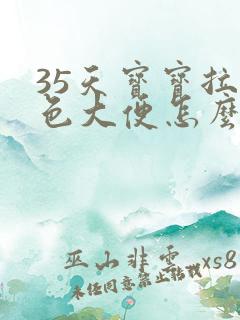 35天寶寶拉
色大便怎麼
巫山非雲 xs8
未经同意禁止转载